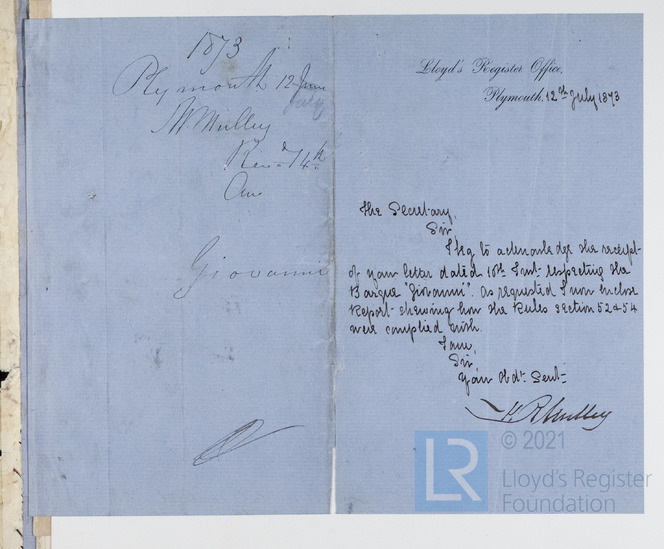 1873
Plymouth 12 June
July
Mulley
Rec.d 14th
Ans
Giovanni
Lloyd's Register Office,
Plymouth, 12th July 1873
The Secretary,
Sir
I beg to acknowledge the receipt
of your letter dated 10th Inst. respecting the
Barque "Giovanni". As requested I now enclose
Report shewing how the Rules Section 52 & 54
were complied with.
I am,
Sir,
Your Obdt. Servt.
Mulley
LR
© 2021
Lloyd's Register
Foundation